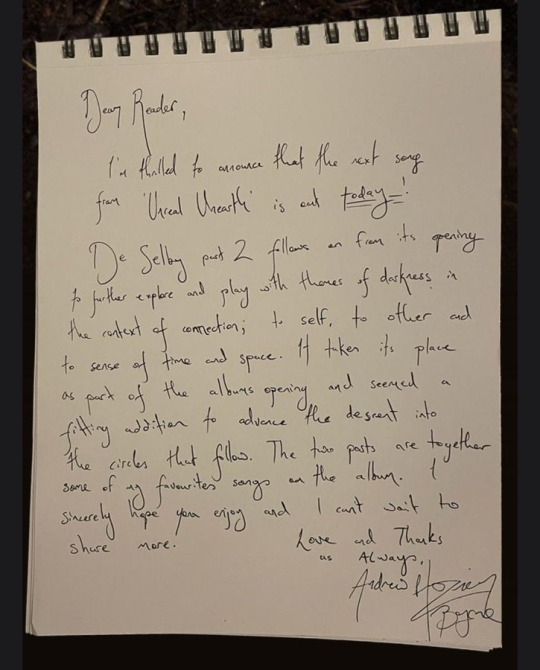 Dear Reader,
I'm thrilled to announce that the next song
from 'Unreal Unearth' is out today!
De Selby part 2 follows on from its opening
to further explore and play with themes of darkness in
the context of connection; to self, to other and
to sense of time and space. It takes its place
as part of the albums opening and seemed a
fitting addition to advance the descent into
the circles that follow. The two parts are together
some of my favourites songs on the album. I
sincerely hope you enjoy and I can't wait to
share more.
Love and Thanks
as Always,
Andrew Hozier
Byrne